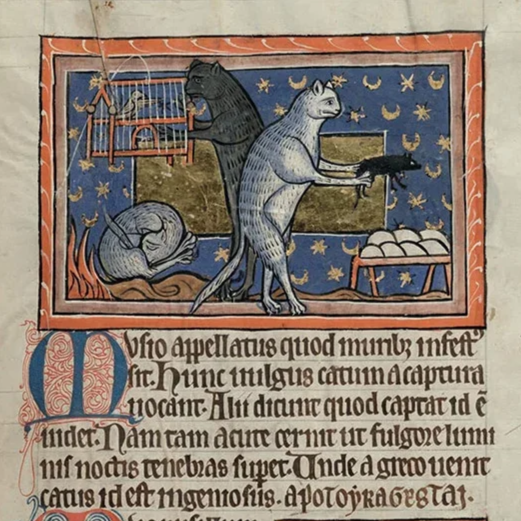 Musio appellatus quod muribꝫ infestꝰ
sit. Hunc uulgus catum a captura
uocant. Alii dicunt quod captat id ē
uidet. Nam tam acute cernit ut fulgore lumi
nis noctis tenebras supet. Unde a greco uenit
catus id est ingeniosus. apoToyKaGESTAI.